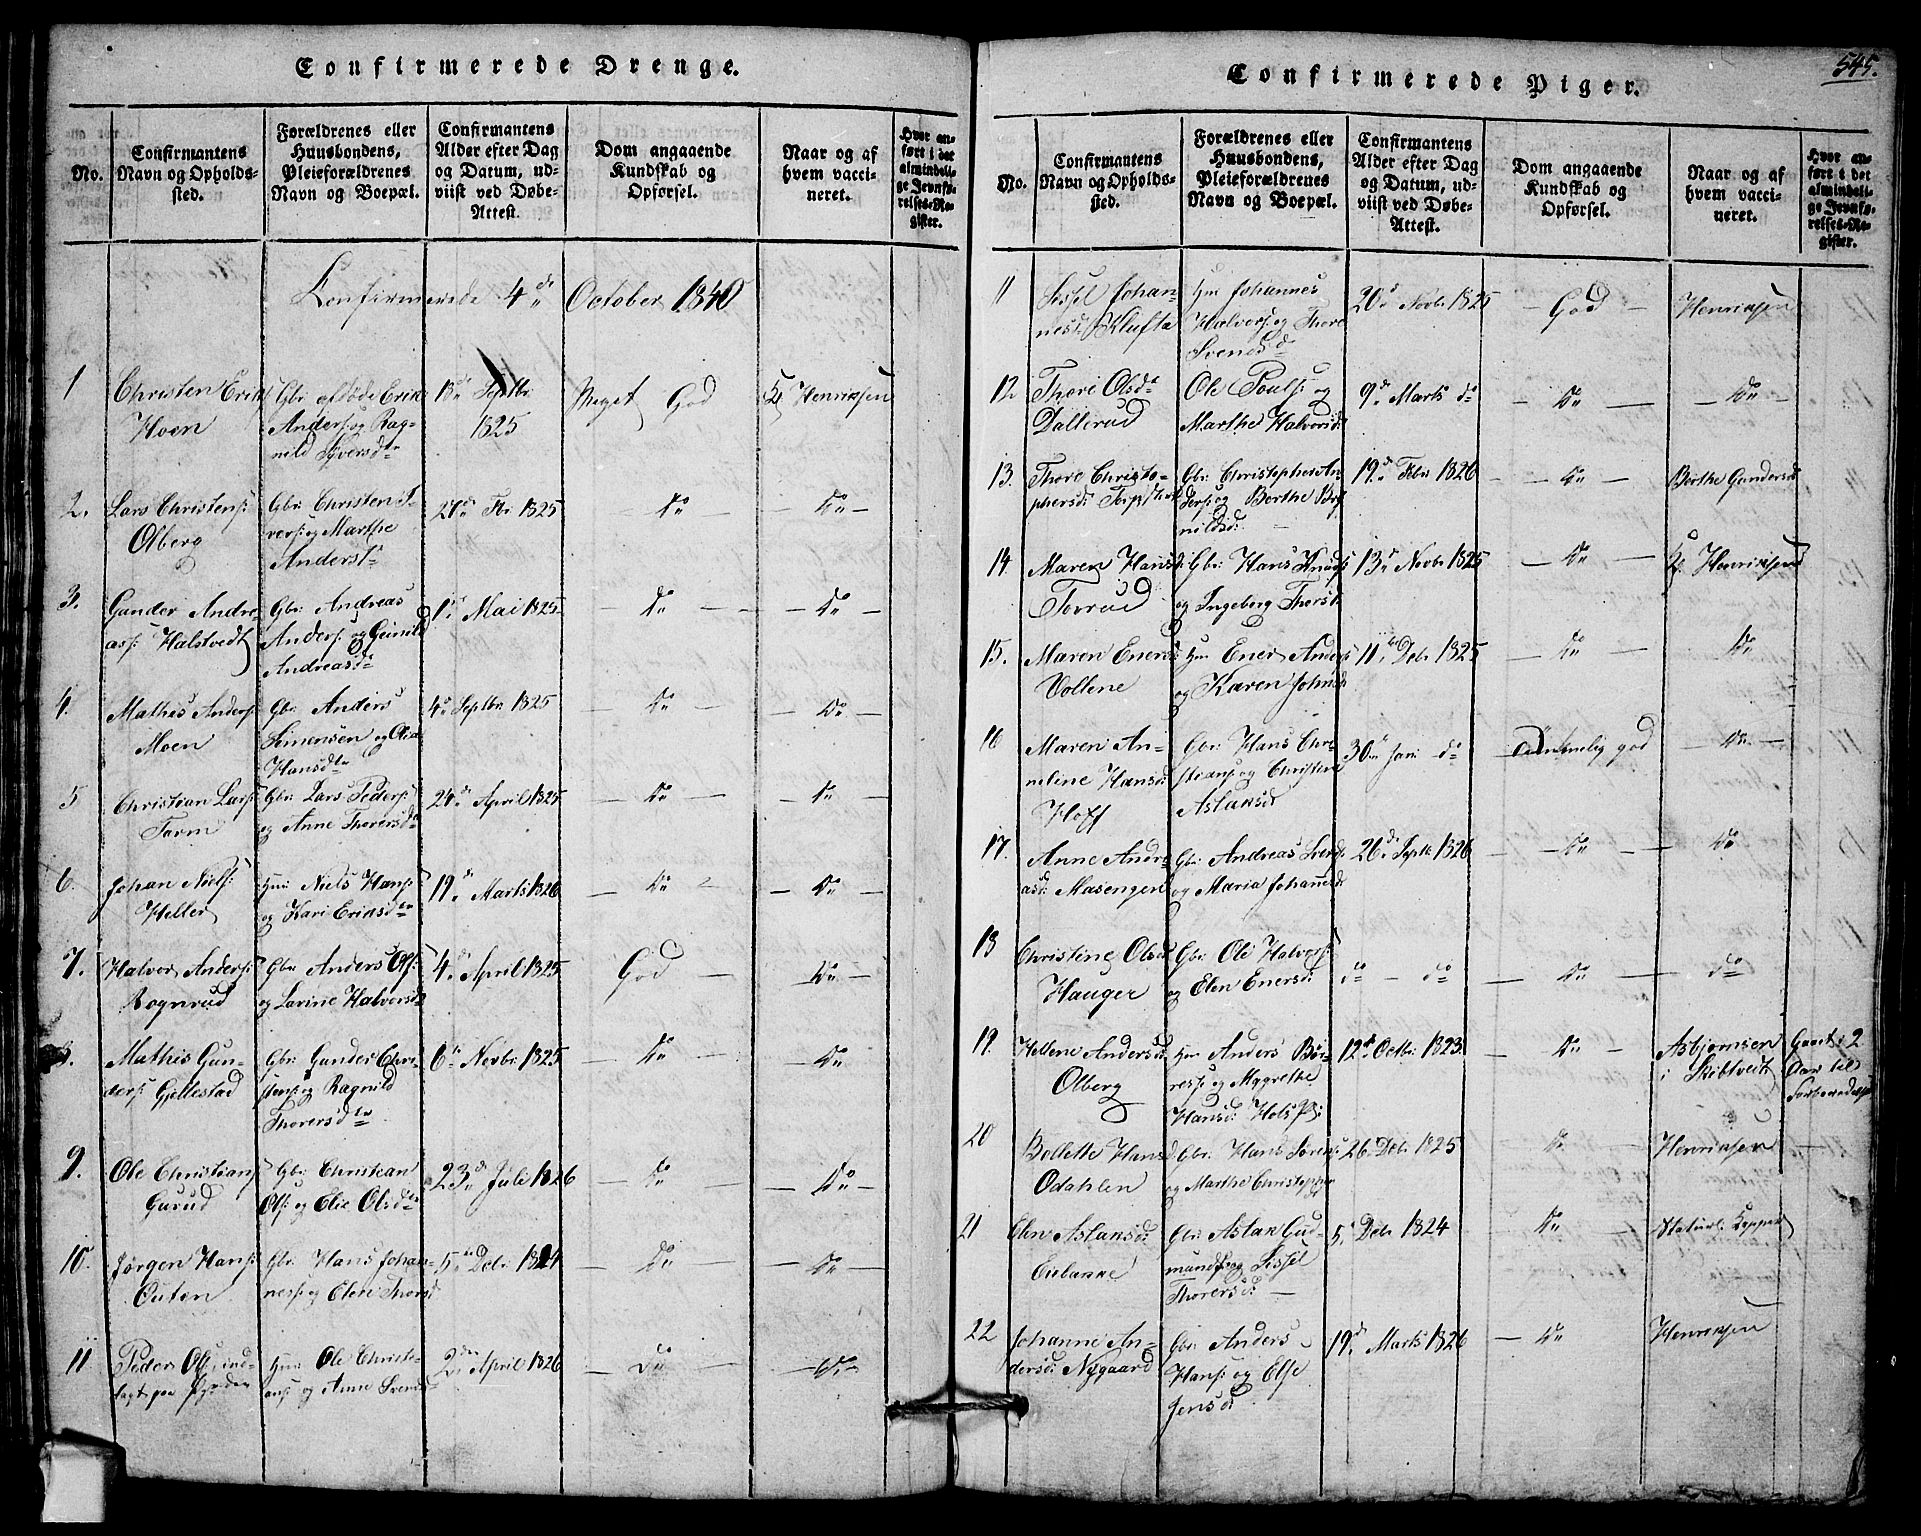 Confirmerede Drenge.
No.
Confirmantens
Navn og Opholds-
sted.
Forældrenes eller
Huusbondens,
Pleieforældrenes
Navn og Boepæl.
Confirmantens
Alder efter Dag
og Datum, ud-
viist ved Døbe-
Attest.
Dom angaaende
Kundskab og
Opførsel.
Naar og af
hvem vacci-
neret.
Hvor an-
ført i det
almindeli-
ge Jevnfø-
relses-Re-
gister.
Confirmerede 4de October 1840
1
Christen Erik
Hoen
Gbr afdøde Erik
Anders: og Rag-
nild Syversdtr
18de Septbr
1825
Meget God
Henriksen
2.
Lars Christens:
Olberg
Gbr: Christen I-
vers: og Marthe
Anders
27de Fbr 1825
do
do
3.
Gunder Andre-
as: Halstvedt
Gbr: Andreas
Anders: og Gunild
Andreasdr
1de Mai 1825
do
do
4.
Mathis Anders:
Moen
Gbr: Anders
Simensen og Olea
Hansdtr
4de Septbr 1825
do
do
5
Christian Lars:
Torm
Gbr: Lars Peders:
og Anne Thoresd
24de April 1825
do
do
6.
Johan Niels:
Heller
Hm: Niels Hans:
og Kari Eriksdtr
19de Marts 1826
do
do
7.
Halvor Anders:
Rognrud
Gbr Anders Ols:
og Larine Halvorsd
4de April 1825
God
do
8.
Mathis Gun-
ders: Gjellestad
Gbr: Gunder Chri-
stens: og Ragnild
Thoresdtr
6te Novbr: 1825
do
do
9.
Ole Christians:
Gurud
Gbr: Christian
Ols: og Elie Olsdtr
23de Juli 1826
do
do
10.
Jørgen Hans:
Outen
Gbr: Hans Johan-
nes: og Elen Thorsd
5te Debr 1824
do
do
11
Peder Ols: ind-
lagt paa
Hm: Ole Christi-
ans: og Anne Svends
2den April 1826
do
do
Confirmerede Piger.
545.
No.
Confirmantens
Navn og Opholds-
sted.
Forældrenes eller
Huusbondens,
Pleieforældrenes
Navn og Boepæl.
Confirmantens
Alder efter Dag
og Datum, ud-
viist ved Døbe-
Attest.
Dom angaaende
Kundskab og
Opførsel.
Naar og af
hvem vacci-
neret.
Hvor an-
ført i det
almindeli-
ge Jevnfø-
relses-Re-
gister.
11
Sissel Johan-
nesd: Klufta
Hm Johannes
Halvors: og Thore
Svendsd
20de Novbr 1825
God
Henriksen
12
Thore Olsd
Dallerud
Ole Pouls: og
Marthe Halvorsd:
9de Marts do
do
do
13.
Thore Christo-
phersd: Torp
Gbr: Christopher An-
ders: og Berthe
19de Febr 1826
do
Berthe Gundersd
14
Maren Hansd:
Torrud
Gbr: Hans Knuds:
og Ingeborg Thorsd:
13de Novbr 1825
do
Henriksen
15.
Maren Enersd:
Vollene
Hm Ener Anders
og Karen Johnsd:
11te Debr 1825
do
do
16
Maren An-
nelene Hansd:
Hoff
Gbr: Hans Chri-
stians: og Christine
Aslaksd
30te Jan: do
Temmelig god
do
17.
Anne Andre-
asd: Masengen
Gbr: Andreas Svends:
og Maria Johannesd
26de Septb: 1826
do
do
18
Christine Olsd
Hauger
Gbr: Ole Halvors:
og Elen Enersd:
do — do
do
do
19.
Hellene Andersd:
Olberg
Hm Anders
og Margrethe
Hansd:
12te Octbr: 1823.
do
Asbjørnsen
i Skibtvedt
Gaaet i 2
Aar til
Forberedelse
20
Bollette Hansd:
Odahlen
Gbr: Hans Sørens:
og Marthe Christopher
26 Debr 1825
do
Henriksen
21
Elen Aslaksd:
Gbr: Aslak Gud-
munds: og Sissel
Thoresd:
5. Debr 1824
do
Naturl. Kopper
22
Johanne An-
dersd: Nygaard
Gbr: Anders
Hans: og Else
Jensd:
19de Marts 1826
do
Henriksen